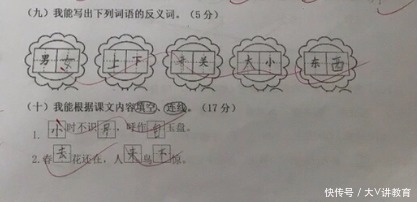 (九)我能写出下列词语的反义词。(5分)
男女 上下 开关 大小 东西
(十)我能根据课文内容填空、连线。(17分)
1. 小时不识月,呼作白玉盘。
2.春去花还在,人来鸟不惊。
快传号/大V讲教育